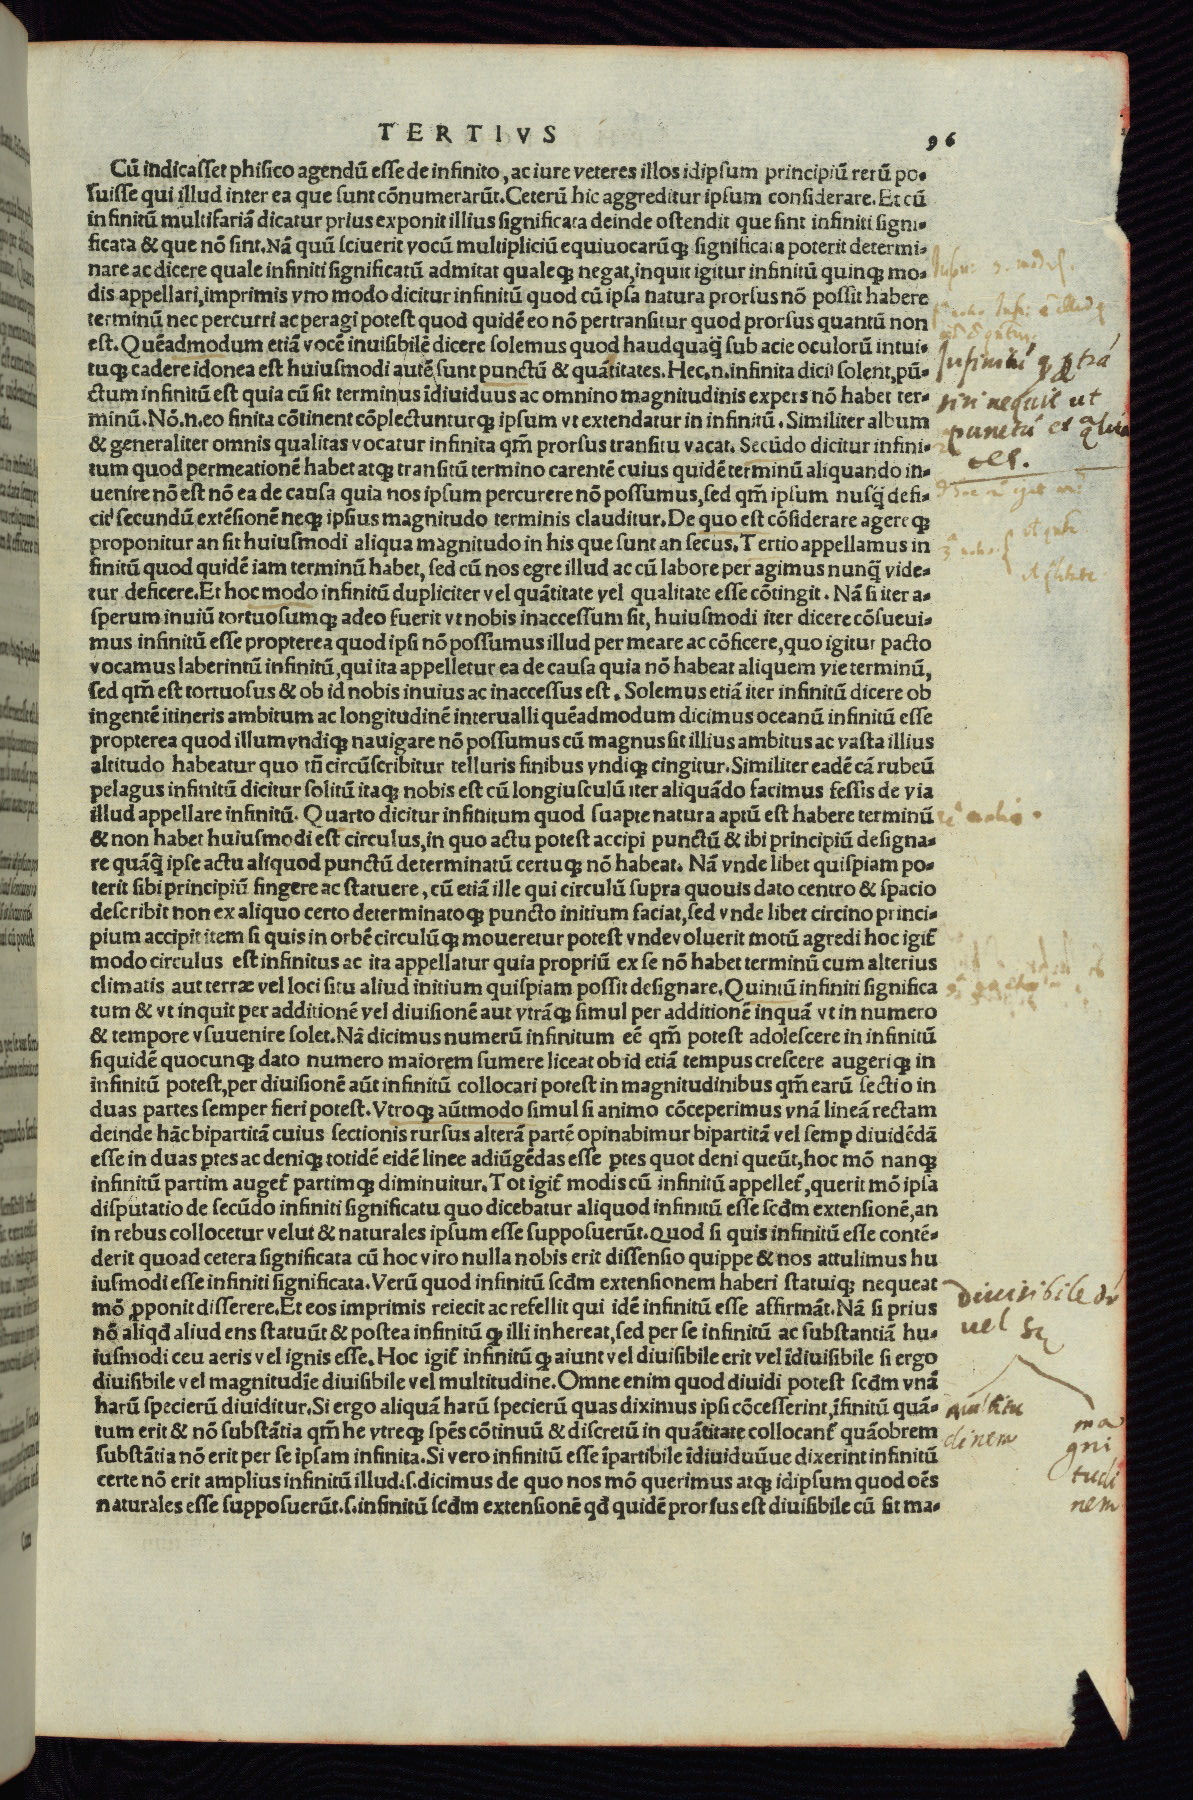 TERTIVS
96
Cũ indicasset phisico agendũ esse de infinito, ac iure veteres illos idipsum principiũ rerũ po-
suisse qui illud inter ea que sunt cõnumerarũt. Ceterũ hic aggreditur ipsum considerare. Et cũ
infinitũ multifariã dicatur prius exponit illius significata deinde ostendit que sint infiniti signi-
ficata & que nõ sint. Nã quũ sciuerit vocũ multipliciũ equiuocarũq; significata poterit determi-
nare ac dicere quale infiniti significatũ admitat qualeq; negat, inquit igitur infinitũ quinq; mo-
dis appellari, imprimis vno modo dicitur infinitũ quod cũ ipsa natura prorsus nõ possit habere
terminũ nec percurri ac peragi potest quod quidẽ eo nõ pertransitur quod prorsus quantũ non
est. Quẽadmodum etiã vocẽ inuisibilẽ dicere solemus quod haudquaq̃ sub acie oculorũ intui-
tuq; cadere idonea est huiusmodi autẽ sunt punctũ & quãtitates. Hec.n.infinita dici solent, pũ-
ctum infinitũ est quia cũ sit terminus ĩdiuiduus ac omnino magnitudinis expers nõ habet ter-
minũ. Nõ.n.eo finita cõtinent cõplectunturq; ipsum vt extendatur in infinitũ. Similiter album
& generaliter omnis qualitas vocatur infinita qm̃ prorsus transitu vacat. Secũdo dicitur infini-
tum quod permeationẽ habet atq; transitũ termino carentẽ cuius quidẽ terminũ aliquando in-
uenire nõ est nõ ea de causa quia nos ipsum percurere nõ possumus, sed qm̃ ipsum nusq̃ defi-
cit secundũ extẽsionẽ neq; ipsius magnitudo terminis clauditur. De quo est cõsiderate agere q;
proponitur an sit huiusmodi aliqua magnitudo in his que sunt an secus. Tertio appellamus in
finitũ quod quidẽ iam terminũ habet, sed cũ nos egre illud ac cũ labore per agimus nunq̃ vide-
tur deficere. Et hoc modo infinitũ dupliciter vel quãtitate vel qualitate esse cõtingit. Nã si iter a-
sperum inuiũ tortuosumq; adeo fuerit vt nobis inaccessum sit, huiusmodi iter dicere cõsueui-
mus infinitũ esse propterea quod ipsi nõ possumus illud per meare ac cõficere, quo igitur pacto
vocamus laberintũ infinitũ, qui ita appelletur ea de causa quia nõ habeat aliquem vie terminũ,
sed qm̃ est tortuosus & ob id nobis inuius ac inaccessus est. Solemus etiã iter infinitũ dicere ob
ingentẽ itineris ambitum ac longitudinẽ interualli quẽadmodum dicimus oceanũ infinitũ esse
propterea quod illum vndiq; nauigare nõ possumus cũ magnus sit illius ambitus ac vasta illius
altitudo habeatur quo tñ circũscribitur telluris finibus vndiq; cingitur. Similiter eadẽ cã rubeũ
pelagus infinitũ dicitur solitũ itaq; nobis est cũ longiusculũ iter aliquãdo facimus fessis de via
illud appellare infinitũ. Quarto dicitur infinitum quod suapte natura aptũ est habere terminũ
& non habet huiusmodi est circulus, in quo actu potest accipi punctũ & ibi principiũ designa-
re quãq̃ ipse actu aliquod punctũ determinatũ certuq; nõ habeat. Nã vnde libet quispiam po-
terit sibi principiũ fingere ac statuere, cũ etiã ille qui circulũ supra quouis dato centro & spacio
describit non ex aliquo certo determinatoq; puncto initium faciat, sed vnde libet circino princi-
pium accipit item si quis in orbẽ circulũq; moueretur potest vnde voluerit motũ agredi hoc igit̃
modo circulus est infinitus ac ita appellatur quia propriũ ex se nõ habet terminũ cum alterius
climatis aut terræ vel loci situ aliud initium quispiam possit designare. Quintũ infiniti significa
tum & vt inquit per additionẽ vel diuisionẽ aut vtrãq; simul per additionẽ inquã vt in numero
& tempore vsuuenire solet. Nã dicimus numerũ infinitum eẽ qm̃ potest adolescere in infinitũ
siquidẽ quocunq; dato numero maiorem sumere liceat ob id etiã tempus crescere augeriq; in
infinitũ potest, per diuisionẽ aũt infinitũ collocari potest in magnitudinibus qm̃ earũ sectio in
duas partes semper fieri potest. Vtroq; aũt modo simul si animo cõceperimus vnã lineã rectam
deinde hãc bipartitã cuius sectionis rursus alterã partẽ opinabimur bipartitã vel semp̱ diuidẽdã
esse in duas p̱tes ac deniq; totidẽ eidẽ linee adiũgẽdas esse p̱tes quot deni queũt, hoc mõ nanq;
infinitũ partim auget̃ partimq; diminuitur. Tot igit̃ modis cũ infinitũ appellet̃, querit mõ ipsa
disputatio de secũdo infiniti significatu quo dicebatur aliquod infinitũ esse scd̃m extensionẽ, an
in rebus collocetur velut & naturales ipsum esse supposuerũt. Quod si quis infinitũ esse contẽ-
derit quoad cetera significata cũ hoc viro nulla nobis erit dissensio quippe & nos attulimus hu
iusmodi esse infiniti significata. Verũ quod infinitũ scd̃m extensionem haberi statuiq; nequeat
mõ p̱ponit disserere. Et eos imprimis reiecit ac refellit qui idẽ infinitũ esse affirmãt. Nã si prius
nõ aliqd̃ aliud ens statuũt & postea infinitũ q; illi inhereat, sed per se infinitũ ac substantiã hu-
iusmodi ceu aeris vel ignis esse. Hoc igit̃ infinitũ q; aiunt vel diuisibile erit vel ĩdiuisibile si ergo
diuisibile vel magnitudĩe diuisibile vel multitudine. Omne enim quod diuidi potest scd̃m vnã
harũ specierũ diuiditur. Si ergo aliquã harũ specierũ quas diximus ipsi cõcesserint, ĩfinitũ quã-
tum erit & nõ substãtia qm̃ he vtreq; spẽs cõtinuũ & discretũ in quãtitate collocant̃ quãobrem
substãtia nõ erit per se ipsam infinita. Si vero infinitũ esse ĩpartibile ĩdiuiduũue dixerint infinitũ
certe nõ erit amplius infinitũ illud.s.dicimus de quo nos mõ querimus atq; idipsum quod oẽs
naturales esse supposuerũt.s.infinitũ scd̃m extensionẽ qd̃ quidẽ prorsus est diuisibile cũ sit ma-
nequit ut
punctũ et
diuisibile
uel
multitu
dinem
ma
gni
tudi
nem